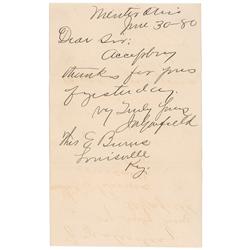 Mentor Ohio
June 30-80
Dear Sir:
Accept my
thanks for yours
of yesterday.
Very Truly Yours
J A Garfield
Thos E Burns
Louisville
Ky.